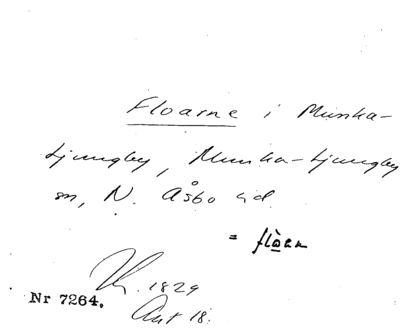 Floarne i Munka-
Ljungby, Munka-Ljungby
sn, N. Åsbo hd.
= flòen
1829
Nr 7264. Akt 18.